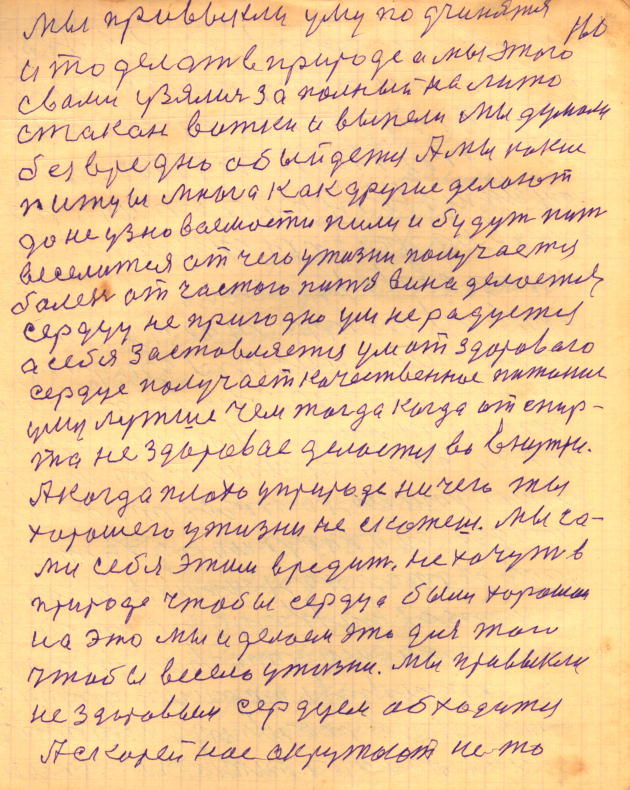 мы привыкли уму подчинятся
што делать в природе а мы этого
свами увялич за полный налито
стакан вотки и выпели мы думали
без вредно обыйдетця А мы какие
пишуц много как другие делоют
до не узноваемости пили и будут пит
веселитця от чего у жизни получаетця
болен от частого питя вина делоетця
сердцу не пригодно ум не радуетця
а себя застовляетця ум от здорового
сердце получает качественное питание
уму лутше чем тогда когда от спир-
та не здоровае делоетця во внутри.
А когда плохо у природе ничего ты
хорошего у жизни не скожеш. мы са-
ми себя этим вредим. не хочут в
природе чтобы сердца были хорошои
на это мы и делоем это для того
чтобы весело у жизни. мы привыкли
не здоровым сердцем обходитця
А скорей нас окружают не то